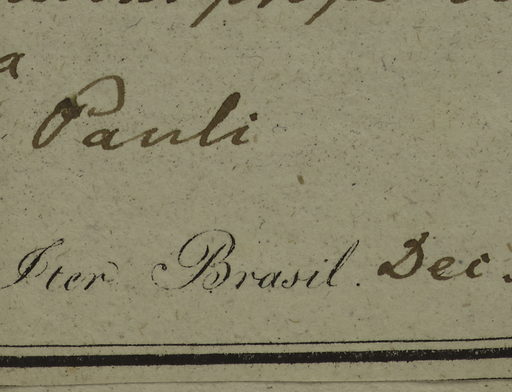 a
Pauli
Iter Brasil. Dec.